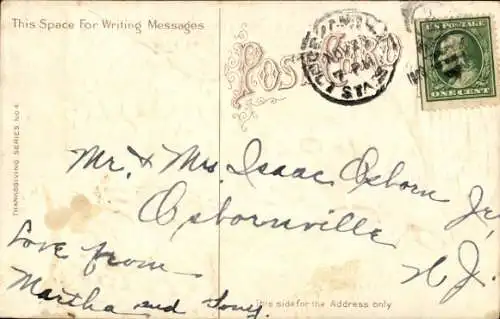 This Space For Writing Messages
POST CARD
NOV 23
7 PM
U.S. POSTAGE
ONE CENT
THANKSGIVING SERIES NO. 4
Mr. & Mrs. Isaac Osborn Jr,
Osbornville
N.J.
Love from
Martha and Tony.
This side for the Address only